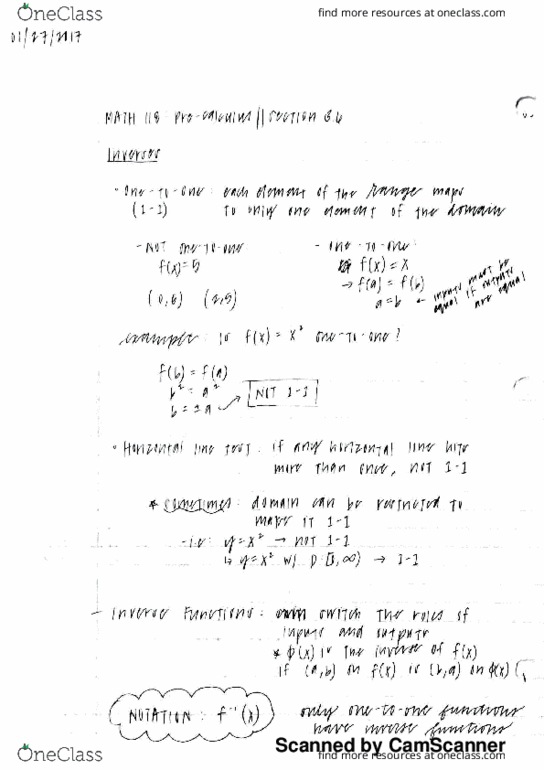 OneClass
find more resources at oneclass.com
01/27/2017
MATH 118: Pre-calculus || Section 3.6
Inverses
· One-to-one: each element of the range maps
(1-1) to only one element of the domain
- NOT one-to-one
f(x)=5
(0,5) (2,5)
- one-to-one:
f(x)=x
→ f(a) = f(b)
a=b ← inputs must be
equal if outputs
are equal
example: is f(x)=x² one-to-one?
f(b) = f(a)
b² = a²
b = ±a → NOT 1-1
· Horizontal line test: if any horizontal line hits
more than once, not 1-1
* sometimes: domain can be restricted to
make it 1-1
-ie: y=x² → not 1-1
↳ y=x² w/ D:[1,∞) → 1-1
- Inverse Functions: switch the roles of
inputs and outputs
* φ(x) is the inverse of f(x)
if (a,b) on f(x) is (b,a) on φ(x)
NOTATION: f⁻¹(x)
only one-to-one functions
have inverse functions
Scanned by CamScanner
OneClass
find more resources at oneclass.com